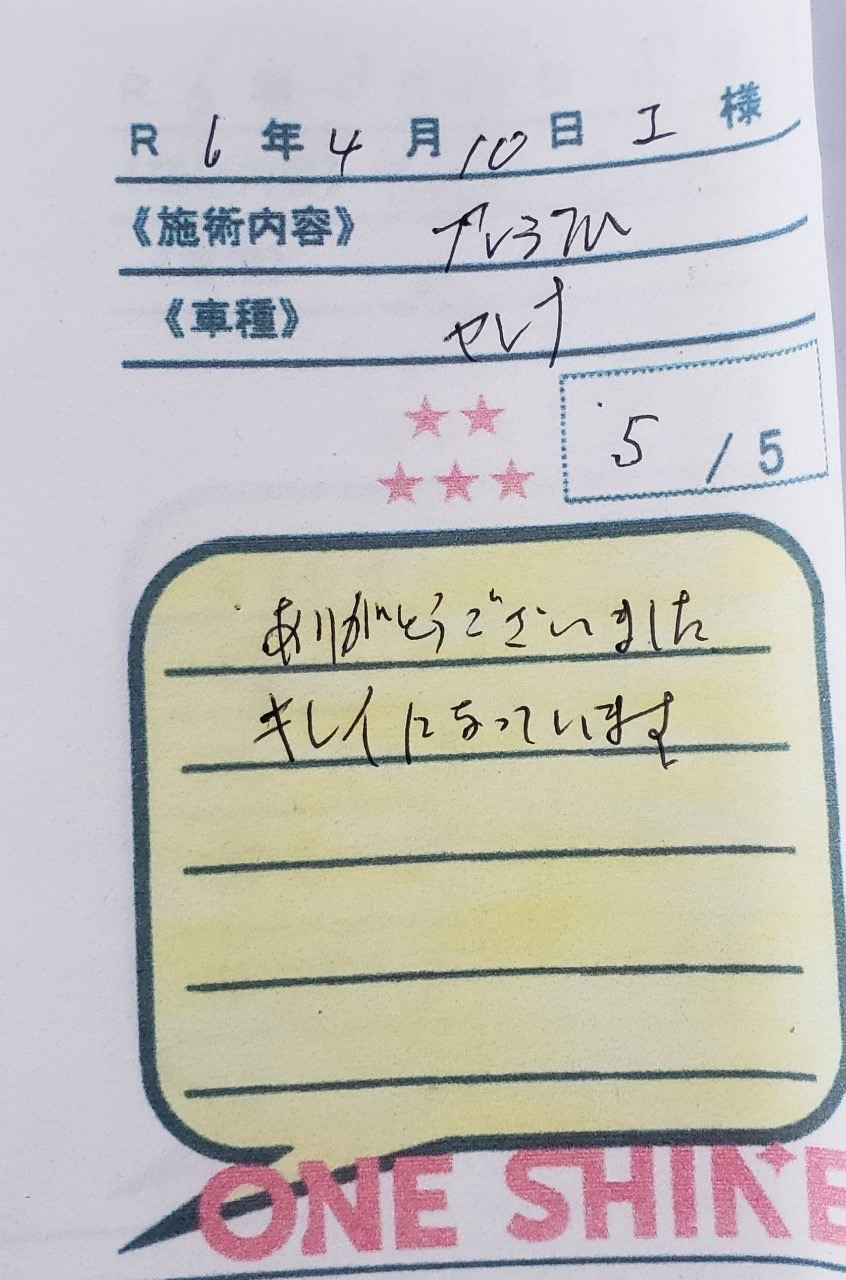 R 6 年 4 月 10 日 エ 様
《施術内容》
《車種》 セレナ
5 / 5
ありがとうございました
キレイになっています
ONE SHINE